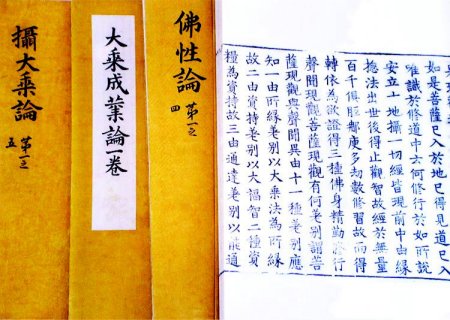 如是菩薩已入於地已得見道已入
唯識於修道中云何修行於如所說
安立十地攝一切經皆現前中由緣
捴法出世後得止觀智故經於無量
百千俱胝那庾多劫數修習故而得
轉依為欲證得三種佛身精勤修行
聲聞現觀菩薩現觀有何差別謂菩
薩現觀與聲聞異由十一種差別應
知一由所緣差別以大乘法為所緣
故二由資持差別以大福智二種資
糧為資持故三由通達差別以能通
佛性論 第一之四
大乘成業論一卷
攝大乘論 第一之五